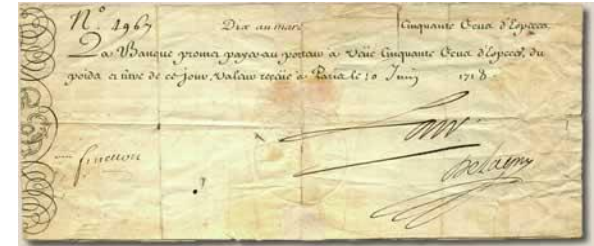 N.º 4967 Dix au marc Cinquante Ecus d'Especes.
La Banque promet payer au porteur a Veüe Cinquante Ecus d'Especes, du
poids et titre de ce jour, Valeur receüe a Paris le 10 Juin 1718.
Law.